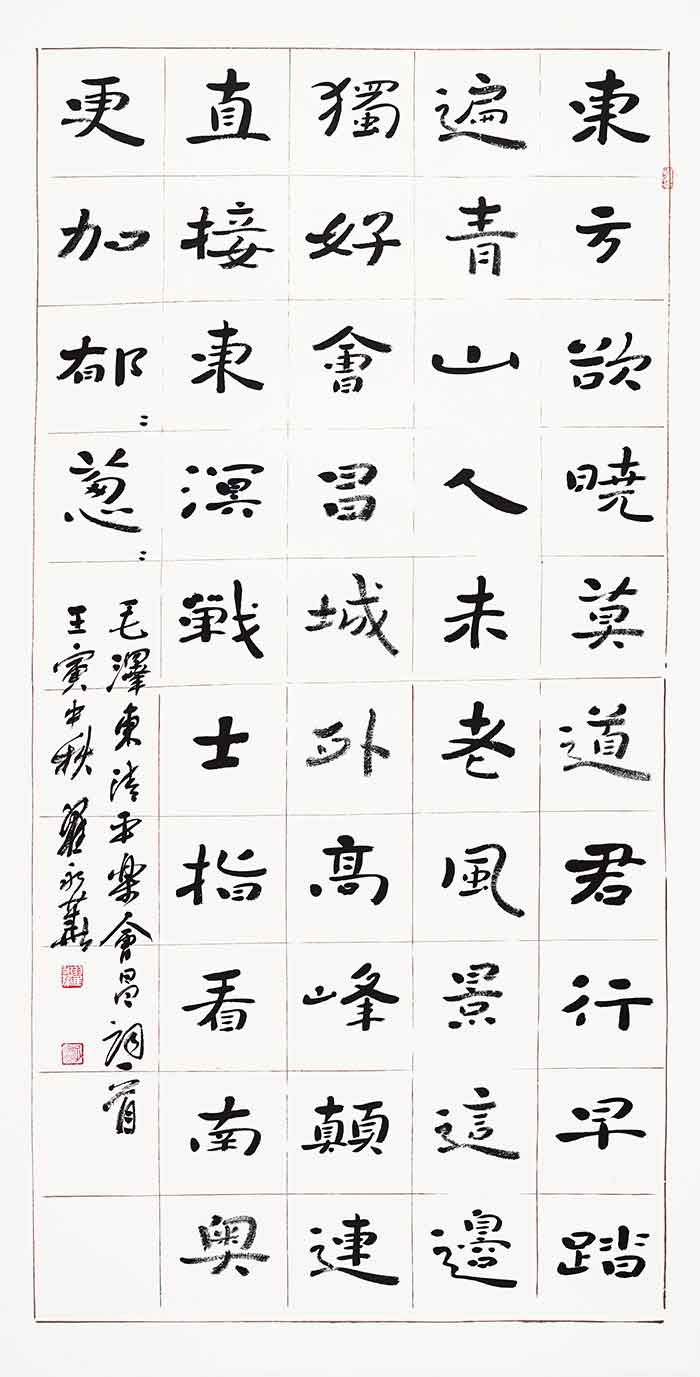 東方欲曉莫道君行早踏
遍青山人未老風景這邊
獨好會昌城外高峰顛連
直接東溟戰士指看南奥
更加郁〻葱〻
毛澤東清平樂會昌詞一首
壬寅中秋